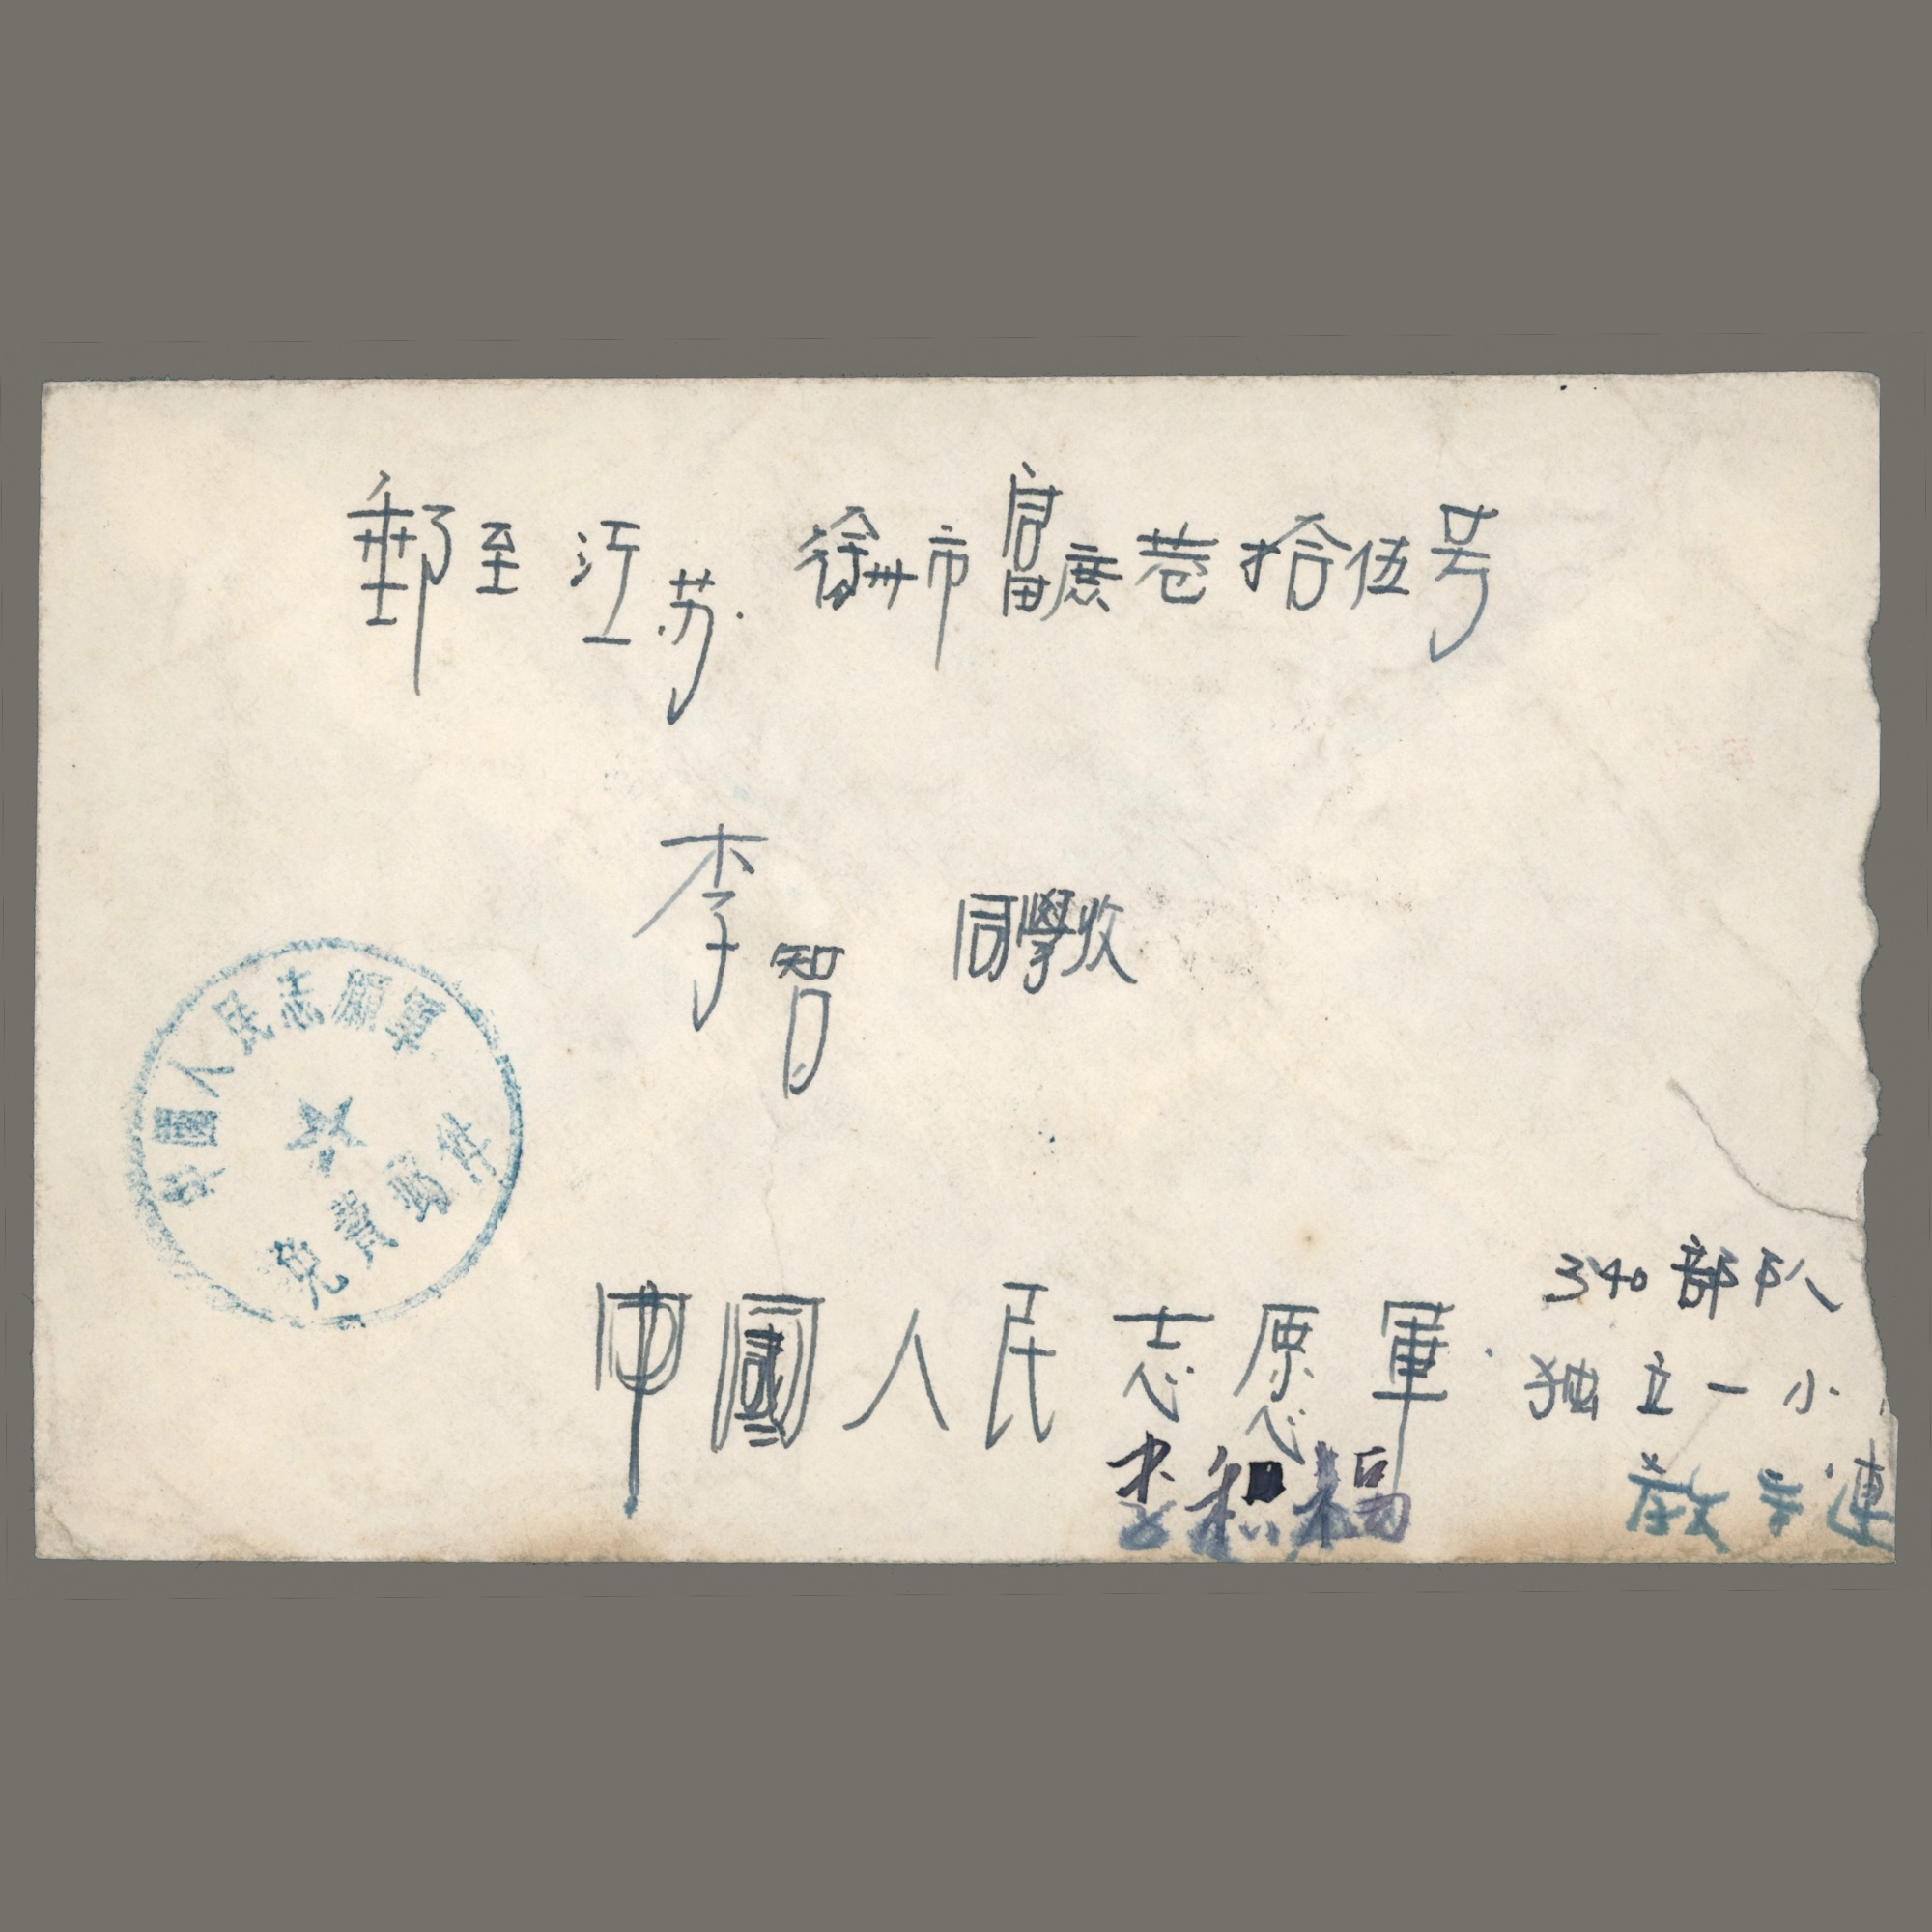 郵至江苏.徐州市富庶巷拾伍号
李智 同學收
中國人民志願軍
免費郵件
中國人民志愿軍.
340部队
独立一小
李积福
教 連